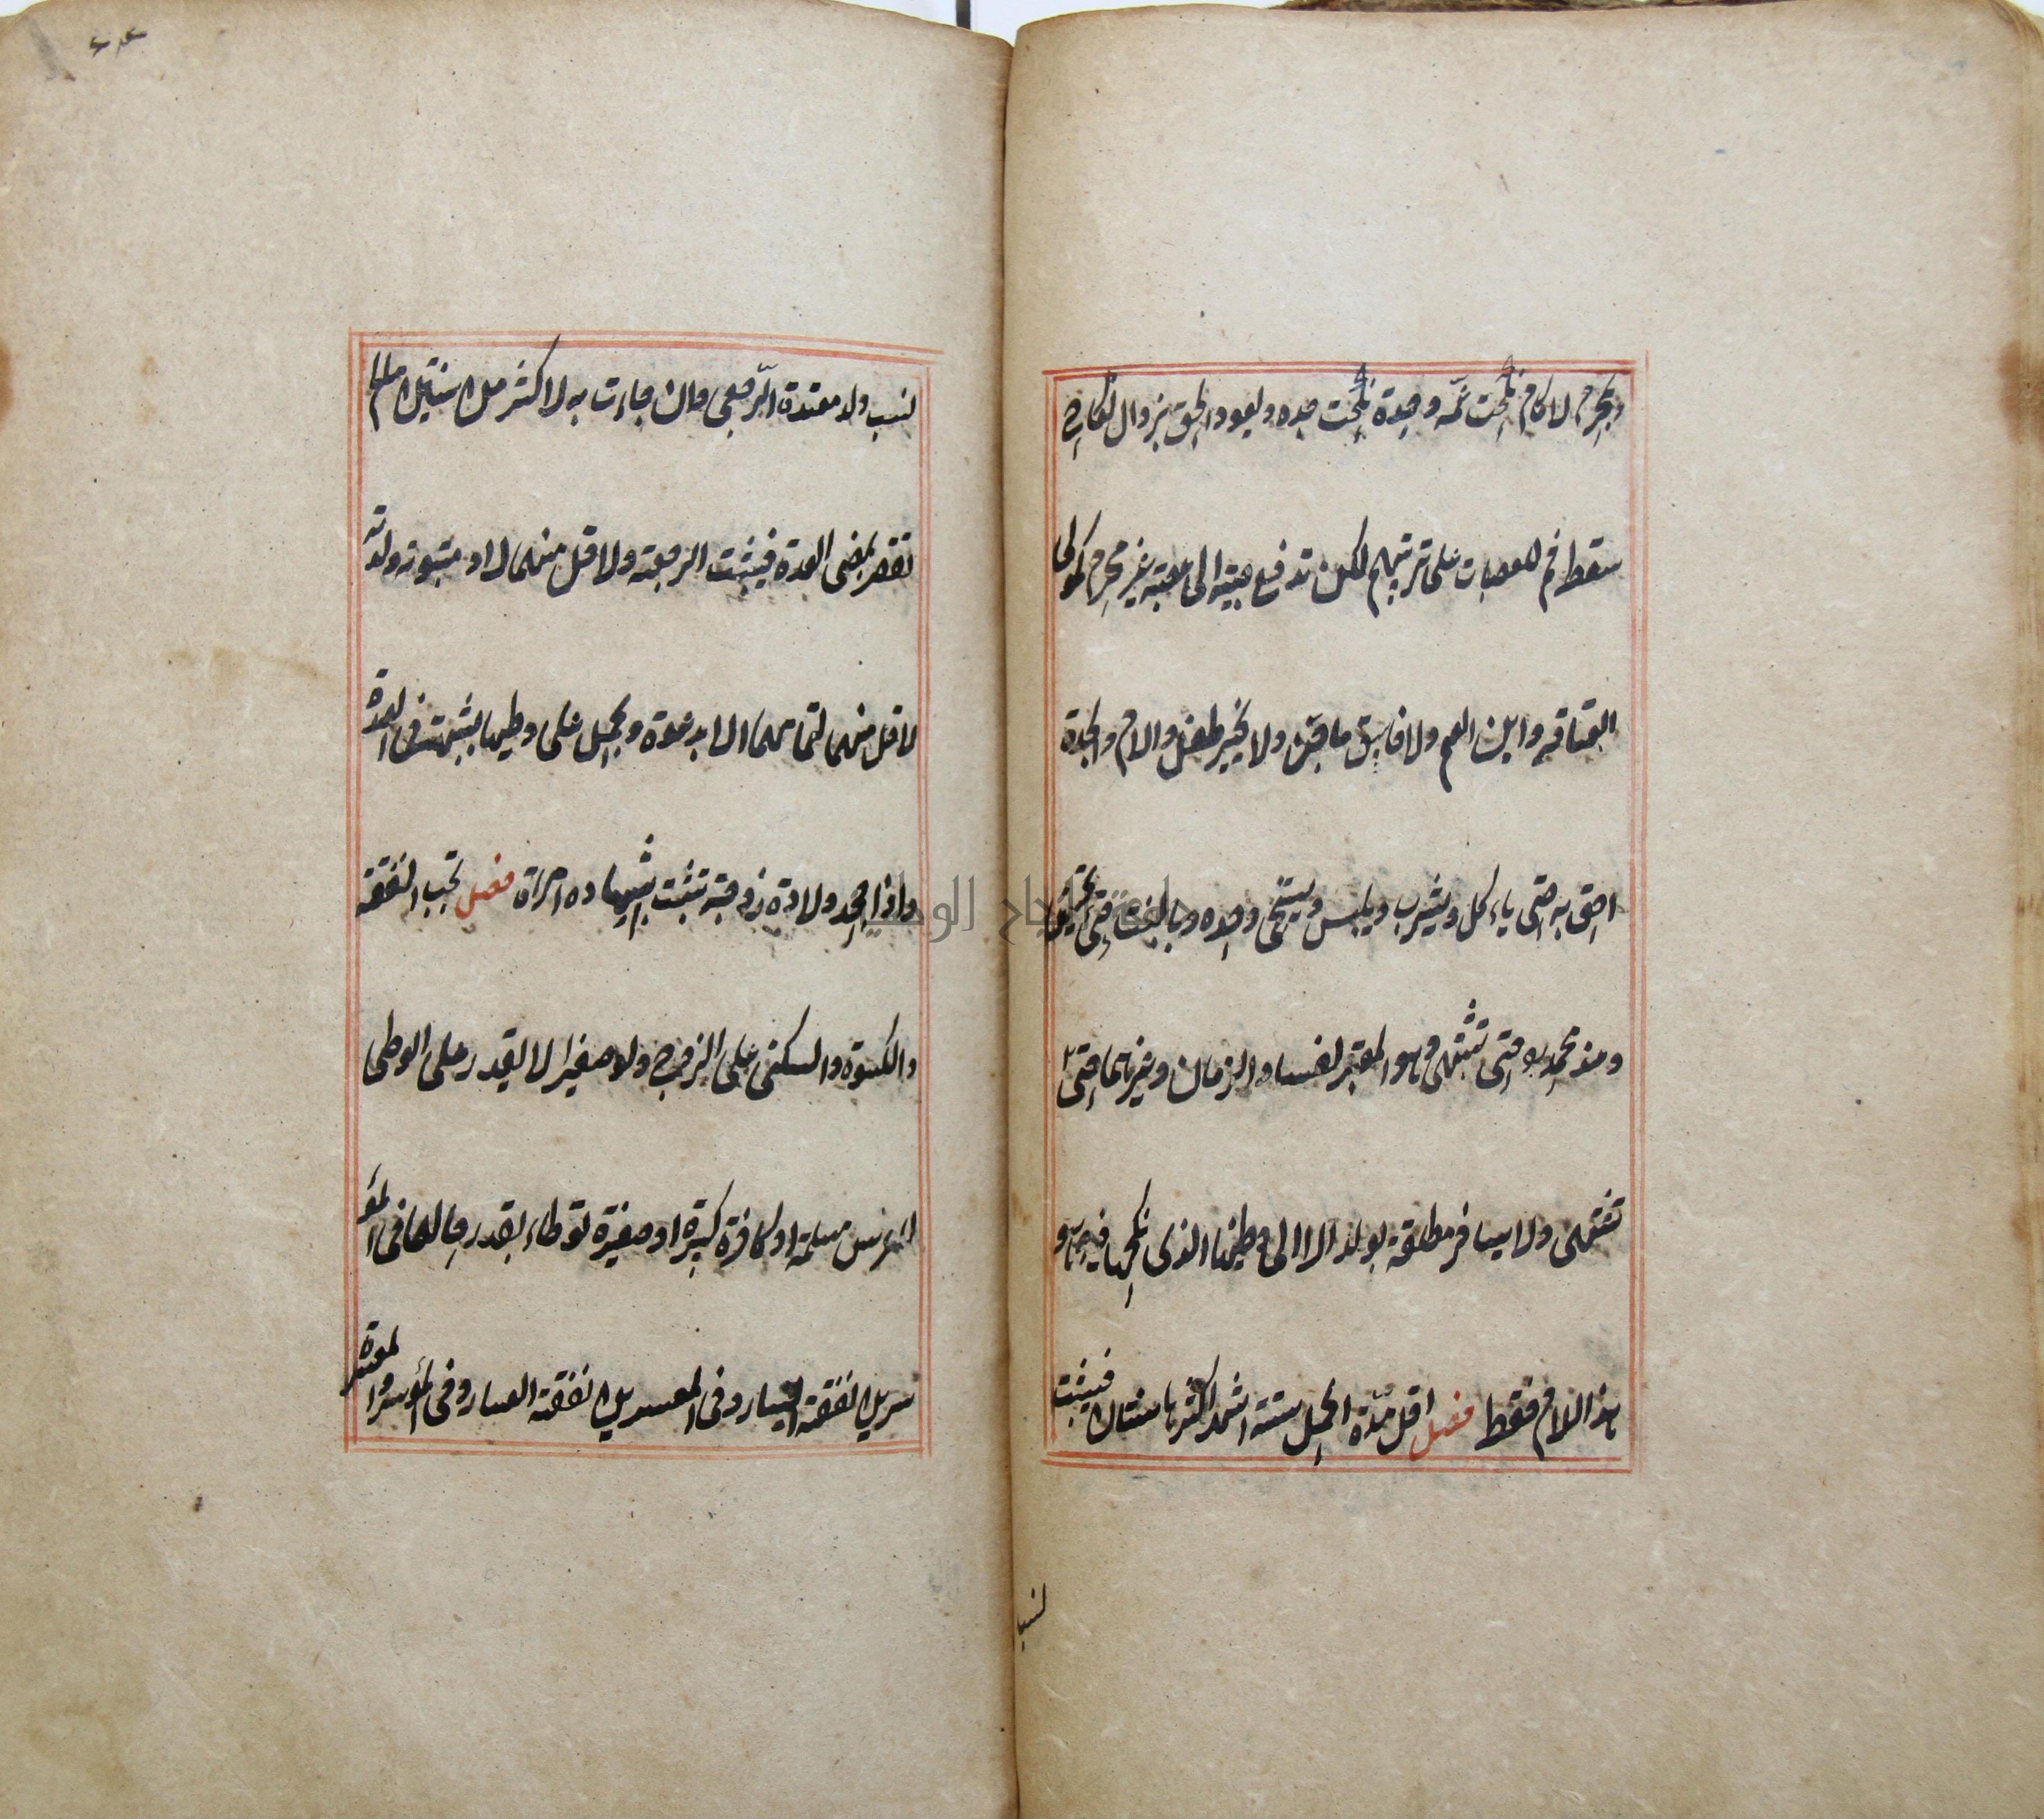 ومحرم لا كام نكحت عمه وجدة نكحت جده ويعود الحق بزوال نكاح
سقط ثم للعصبات على ترتيبهم لكن لا تدفع صبية الى عصبة غير محرم كمولى
العتاقه وابن العم ولا فاسق ماجن ولا يخير طفل والام والجدة
احق به حتى ياءكل ويشرب ويلبس ويستنجى وحده وبالبنت حتى تحيض
وعند محمد رح حتى تشتهى وهو المعتبر لفساد الزمان وغيرهما حتى
تشتهى ولا يسافر مطلقة بولدها الا الى وطنها الذى نكحها فيه وهو
هذا للام فقط فصل اقل مدة الحمل ستة اشهر واكثرها سنتان فيثبت
نسب
نسب ولد معتدة الرجعى وان جاءت به لاكثر من سنتين ما لم
تقر بمضى العدة فيثبت الرجعة ولاقل منهما لا ومبتوتة ولدته
لاقل منهما لتمامهما الا بدعوة ويحمل على وطيها بشبهة فى العدة
واذا جحد ولادة زوجته تثبت بشهادة امراة فصل تجب النفقة
والكسوة والسكنى على الزوج ولو صغيرا لا يقدر على الوطى
للعرس مسلمة او كافرة كبيرة او صغيرة توطاء بقدر حالهما فى المو
سرين نفقة اليسار وفى المعسرين نفقة العسار وفى الموسر والمعسرة